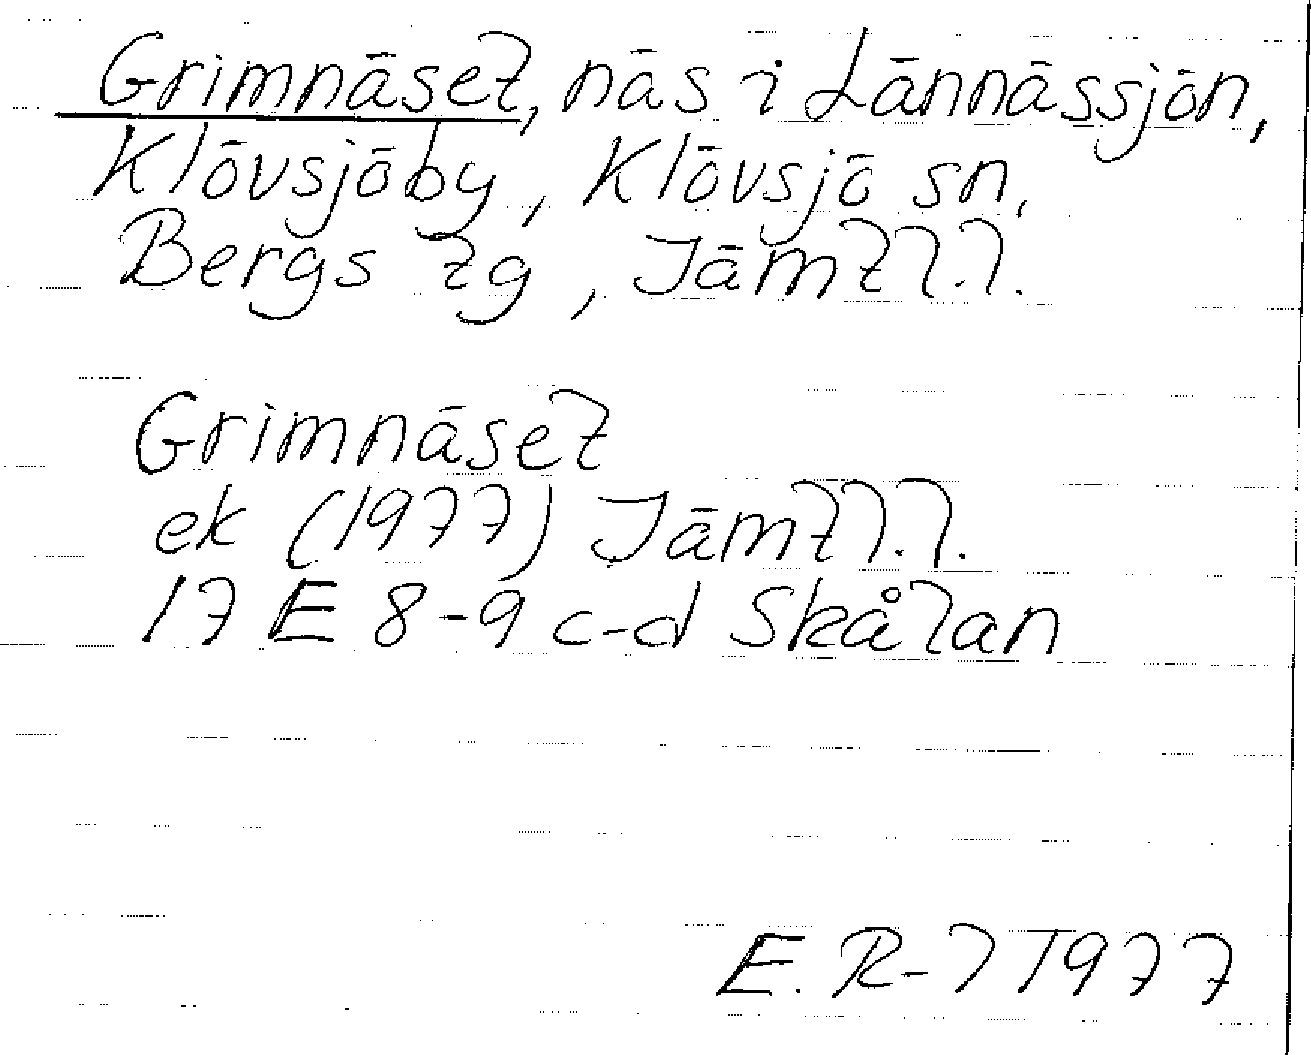 Grimnäset, näs i Lännässjön,
Klövsjöby, Klövsjö sn,
Bergs tg, Jämtl.l.
Grimnäset
ek (1977) Jämtl.l.
17 E 8-9 c-d Skålan
E. R-l 1977